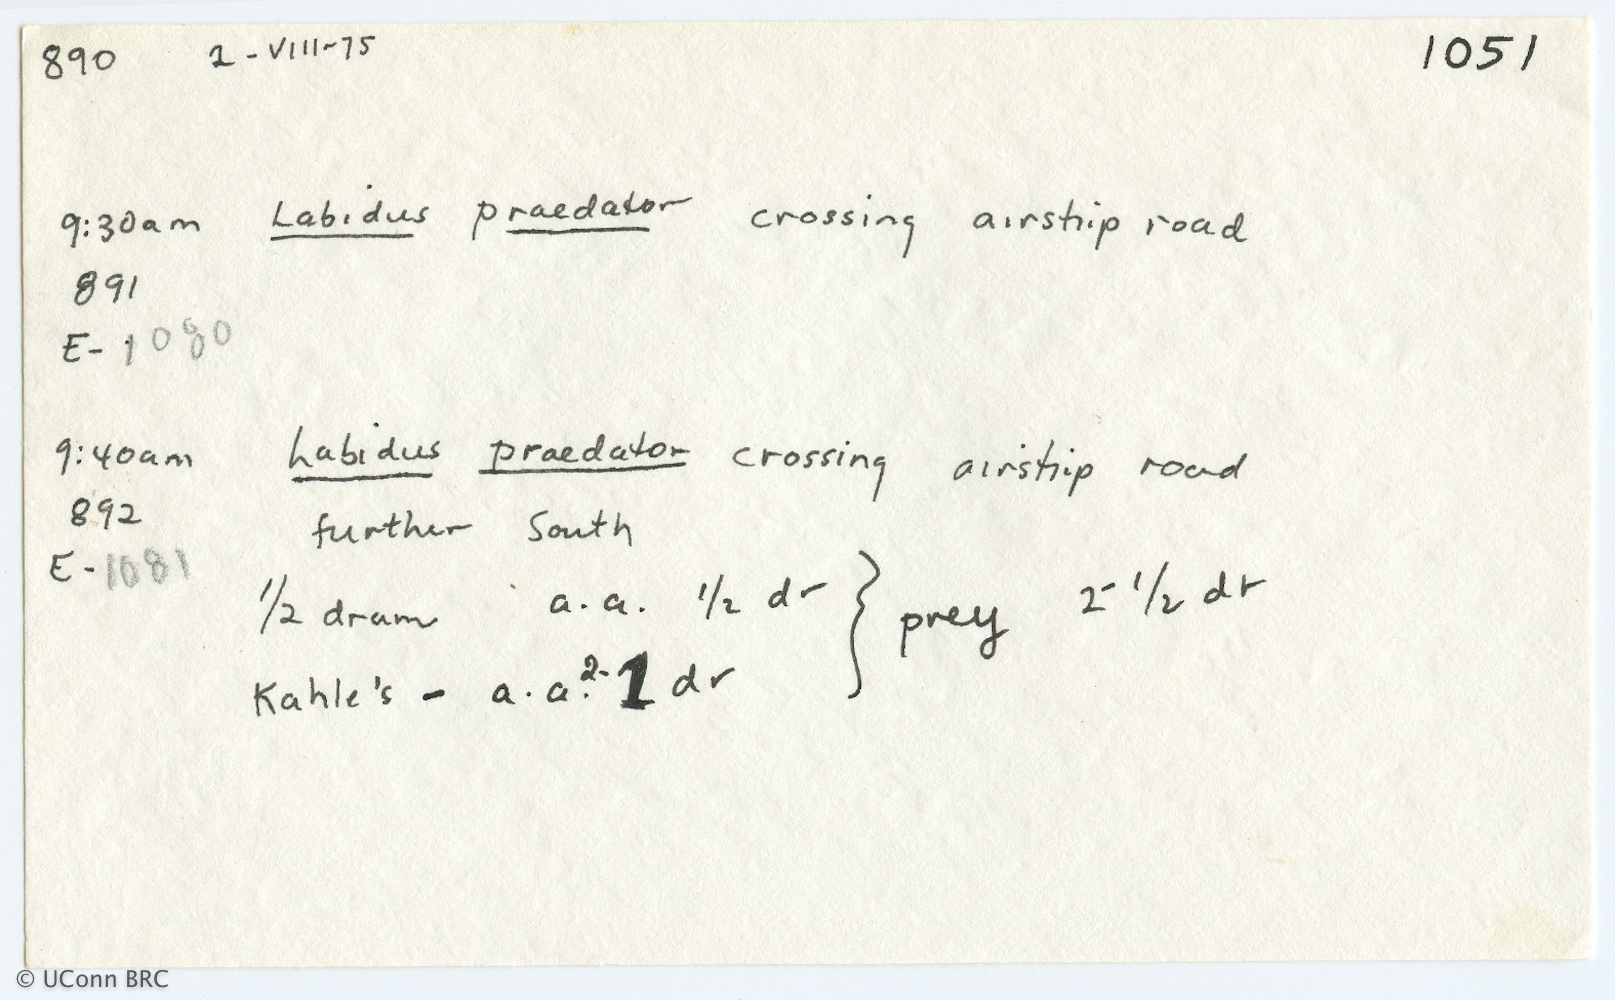 890 2-VIII-75 1051
9:30am Labidus praedator crossing airstrip road
891
E-1080
9:40am Labidus praedator crossing airstrip road
892 further South
E-1081
1/2 dram a.a. 1/2 dr } prey 2-1/2 dr
Kahle's - a.a. 2-1 dr
© UConn BRC